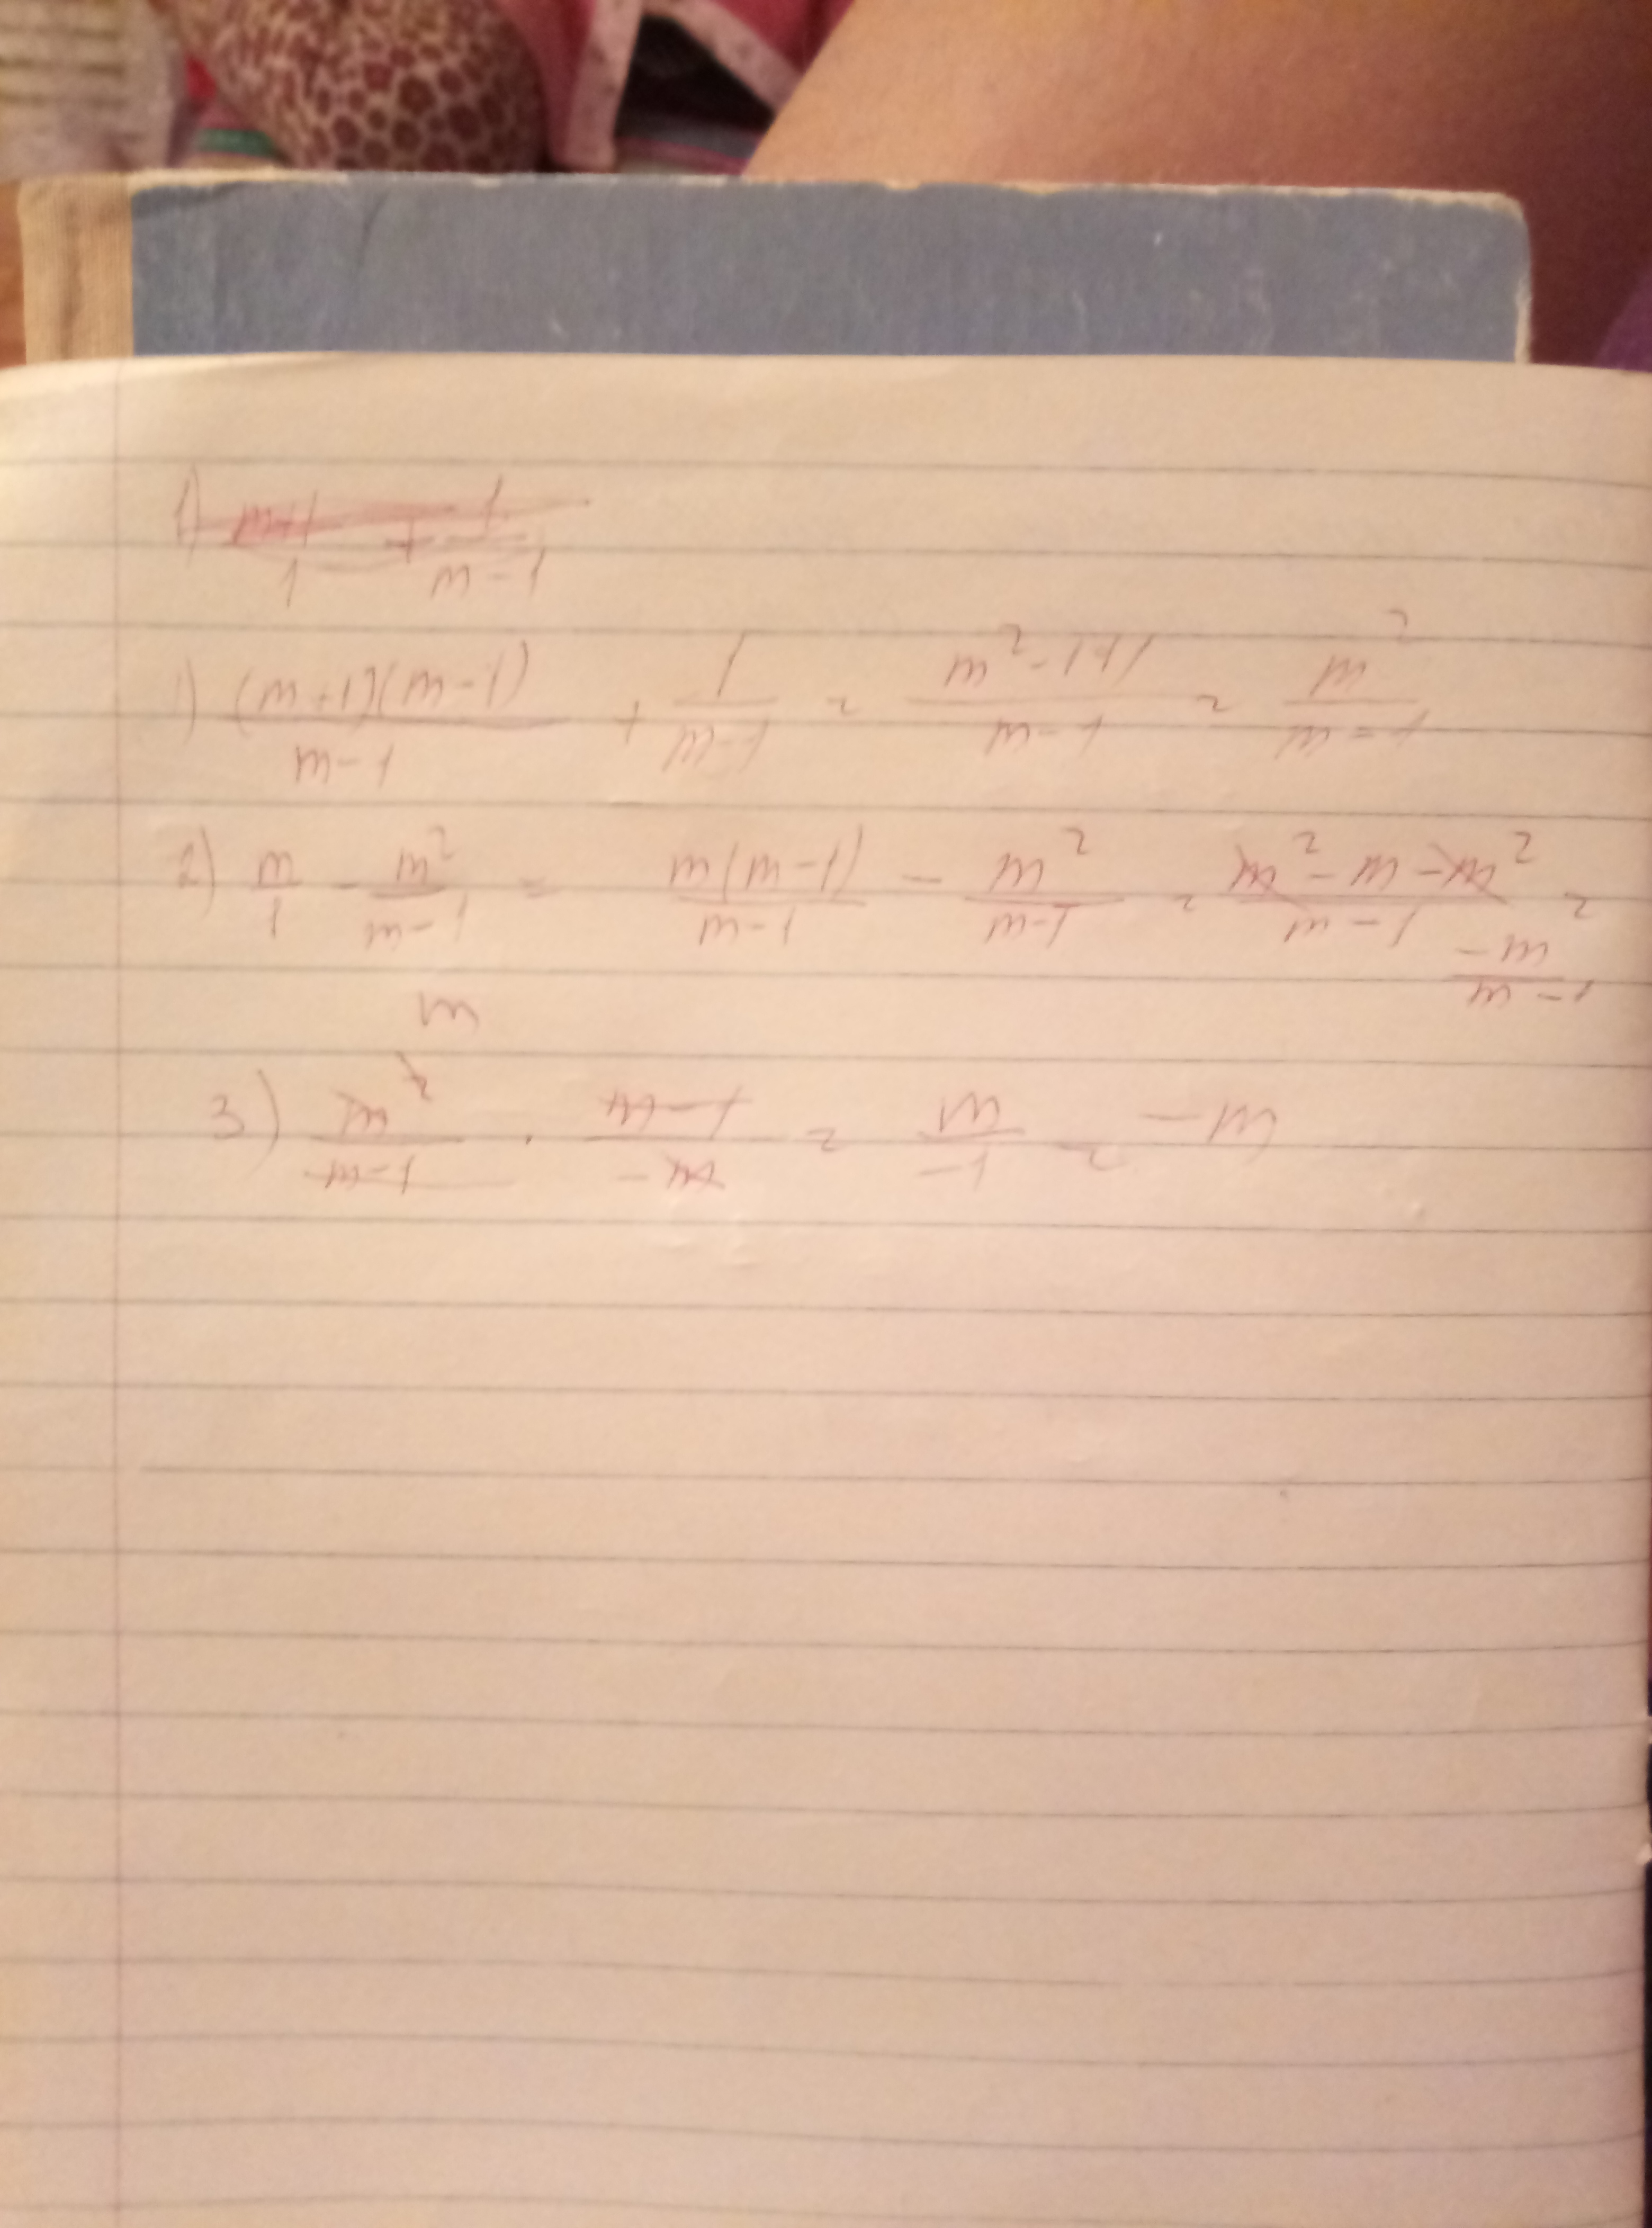 1) m+1/1 + 1/m-1
1) (m+1)(m-1)/m-1 + 1/m-1 = m²-1+1/m-1 = m²/m-1
2) m/1 - m²/m-1 = m(m-1)/m-1 - m²/m-1 = m²-m-m²/m-1 =
-m/m-1
m
3) m²/m-1 · m-1/-m = m/-1 = -m